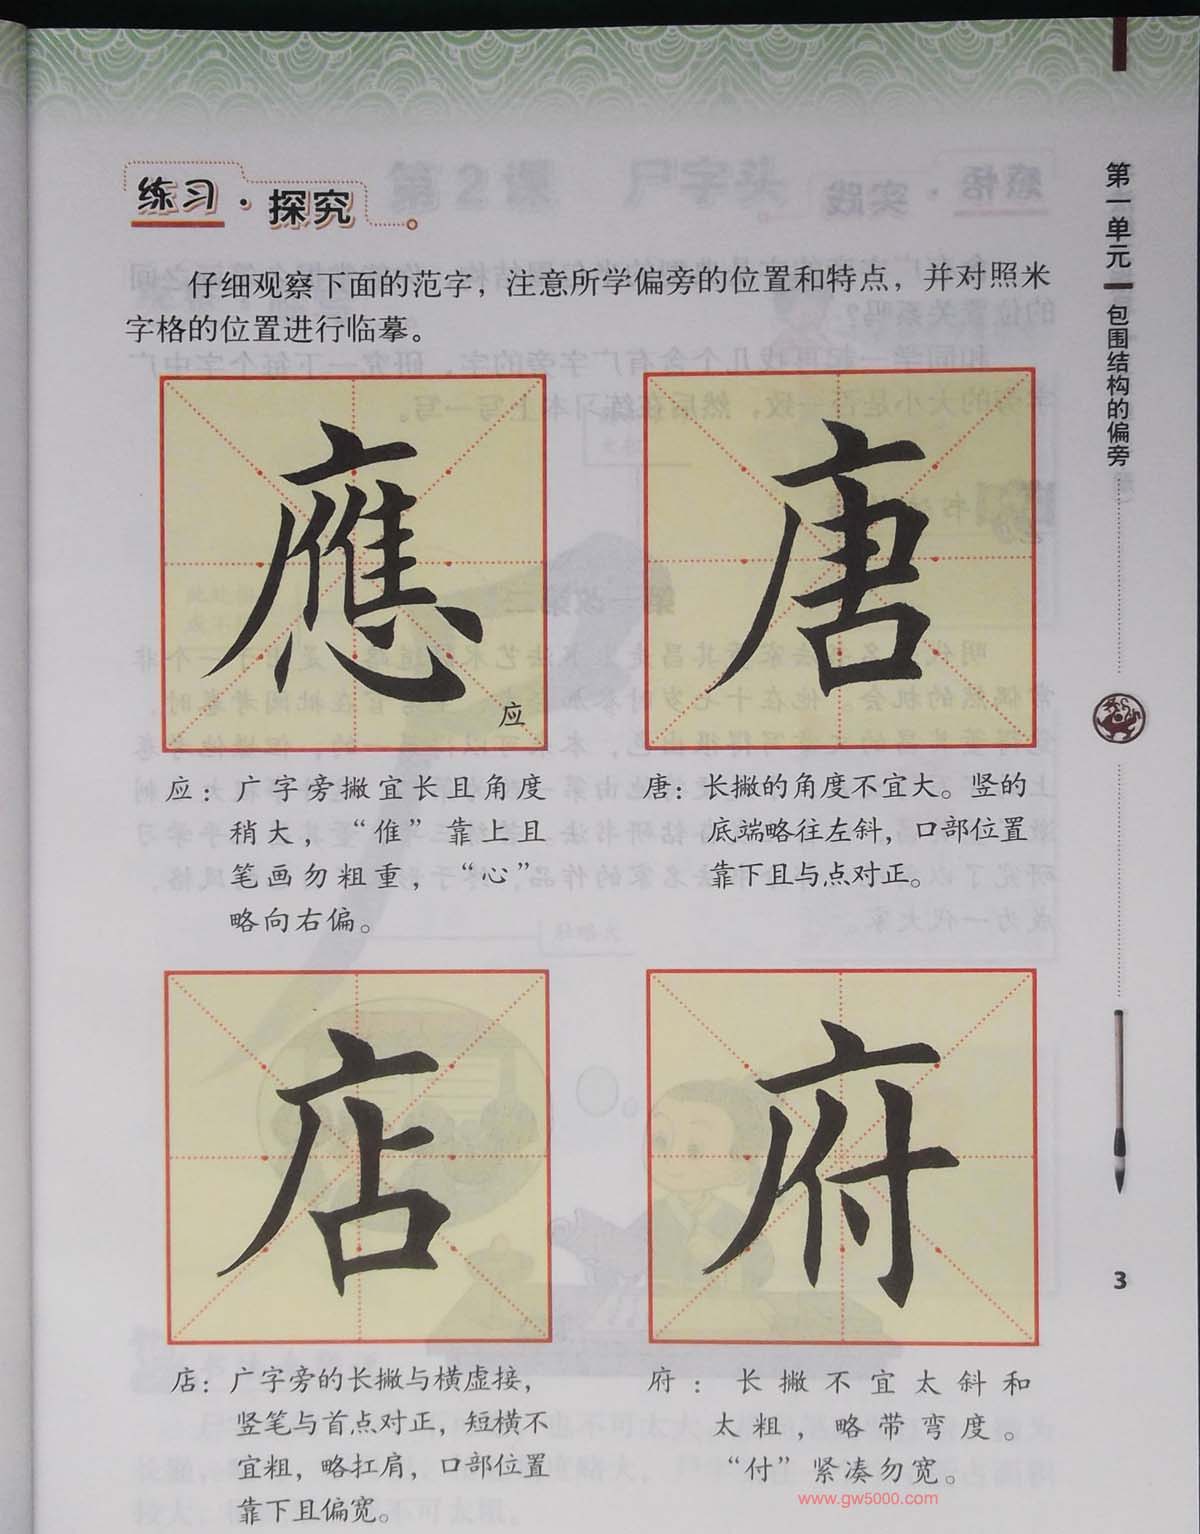 练习·探究
仔细观察下面的范字，注意所学偏旁的位置和特点，并对照米
字格的位置进行临摹。
應
应
唐
应：广字旁撇宜长且角度
稍大，“倠”靠上且
笔画勿粗重，“心”
略向右偏。
唐：长撇的角度不宜大。竖的
底端略往左斜，口部位置
靠下且与点对正。
店
府
店：广字旁的长撇与横虚接，
竖笔与首点对正，短横不
宜粗，略扛肩，口部位置
靠下且偏宽。
府：长撇不宜太斜和
太粗，略带弯度。
“付”紧凑勿宽。
www.gw5000.com
第一单元
包围结构的偏旁
3